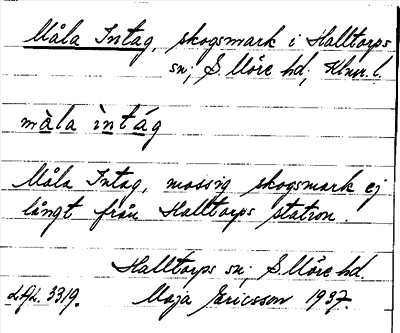 Måla Intag, skogsmark i Halltorps
sn; S. Möre hd; Klmr. l.
màla ìntág
Måla Intag, mossig skogsmark ej
långt från Halltorps station.
Halltorps sn; S Möre hd.
Maja Ericsson 1937.
3319.